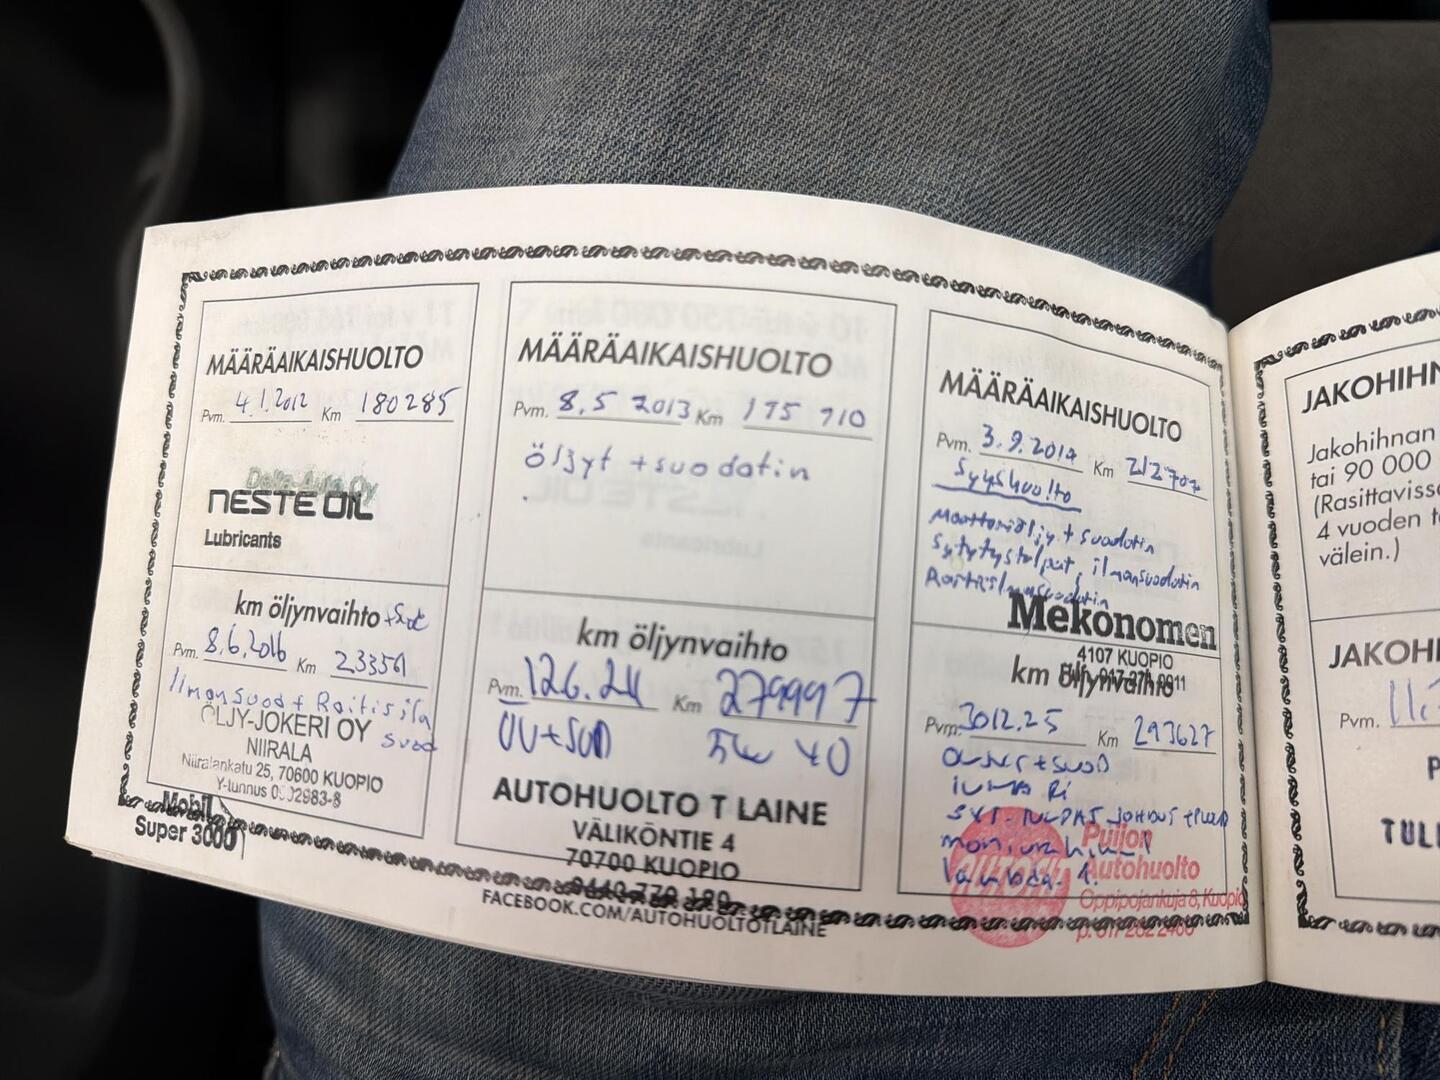 MÄÄRÄAIKAISHUOLTO
Pvm. 4.1.2012 Km 180285
Delta-Auto Oy
NESTE OIL
Lubricants
km öljynvaihto
Pvm. 8.6.2016 Km
Ilmansuod + Raitisila
suod
ÖLJY-JOKERI OY
NIIRALA
Niiralankatu 25, 70600 KUOPIO
Y-tunnus
Mobil
Super 3000
MÄÄRÄAIKAISHUOLTO
Pvm. 8.5 2013 Km 195 910
öljyt + suodatin
km öljynvaihto
Pvm. 126.24 Km 279997
ÖV+SUOD 5W 40
AUTOHUOLTO T LAINE
VÄLIKÖNTIE 4
70700 KUOPIO
FACEBOOK.COM/AUTOHUOLTOTLAINE
MÄÄRÄAIKAISHUOLTO
Pvm. 3.9.2014 Km 212707
Syyshuolto
Moottoriöljy + suodatin
Sytytystulpat, ilmansuodatin
Raitisilmansuodatin
Mekonomen
4107 KUOPIO
km öljynvaihto
Pvm. 3012.25 Km 293627
+SUOD
Puijon
Autohuolto
Oppipojankuja 8, Kuopio
JAKOHIHN
Jakohihnan
tai 90 000
(Rasittavissa
4 vuoden
välein.)
JAKOHI
Pvm.